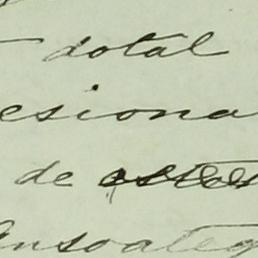 dotal
esiona
de
Ansoateg